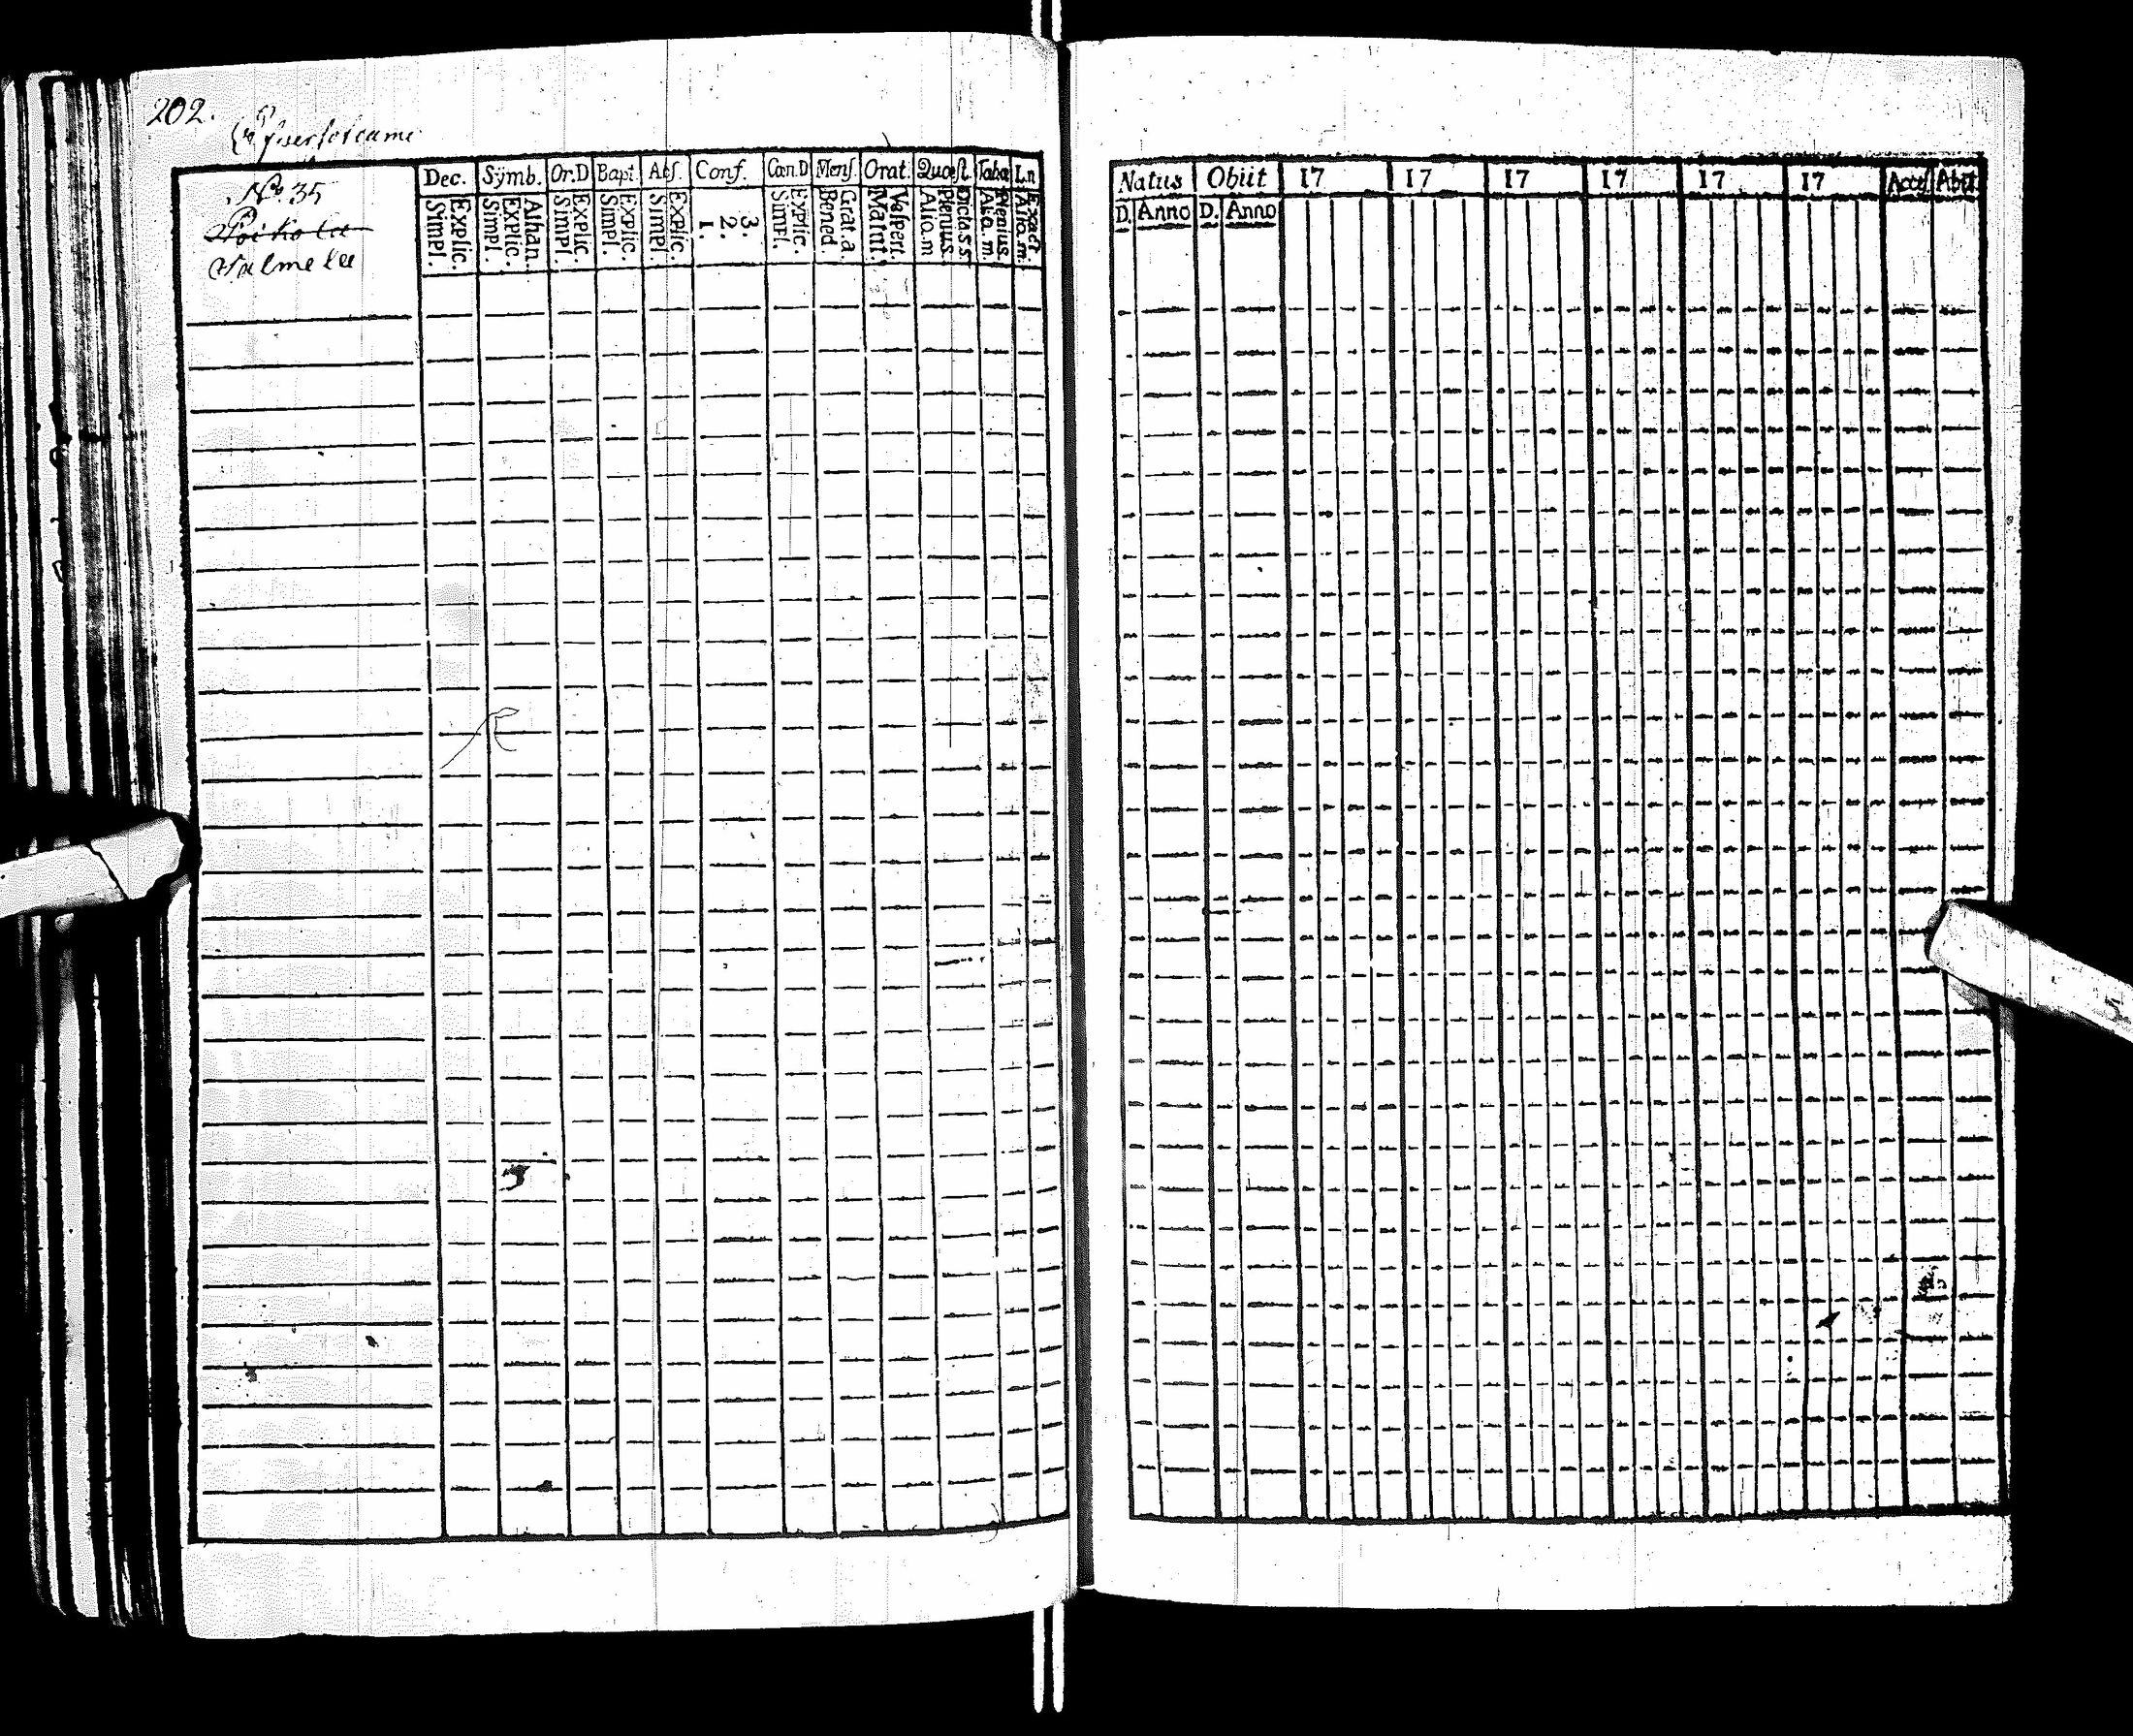 202.
No. 35
Poikola
Salmela
Dec. Sÿmb. Or.D Bapt. Abſ. Conf. Cœn.D Menſ. Orat. Quœſt. Taba Ln
Simpl. Explic. Simpl. Explic. Athan. Simpl. Explic. Simpl. Explic. Simpl. Explic. 1. 2. 3. Simpl. Explic. Bened. Grat.a. Matut. Veſpert. Aliq.m Plenius Dicta s.s. Aliq.m. Plenius. Aliq.m. Exact.
Natus Obiit 17 17 17 17 17 17 Acceſ. Abiit.
D. Anno D. Anno